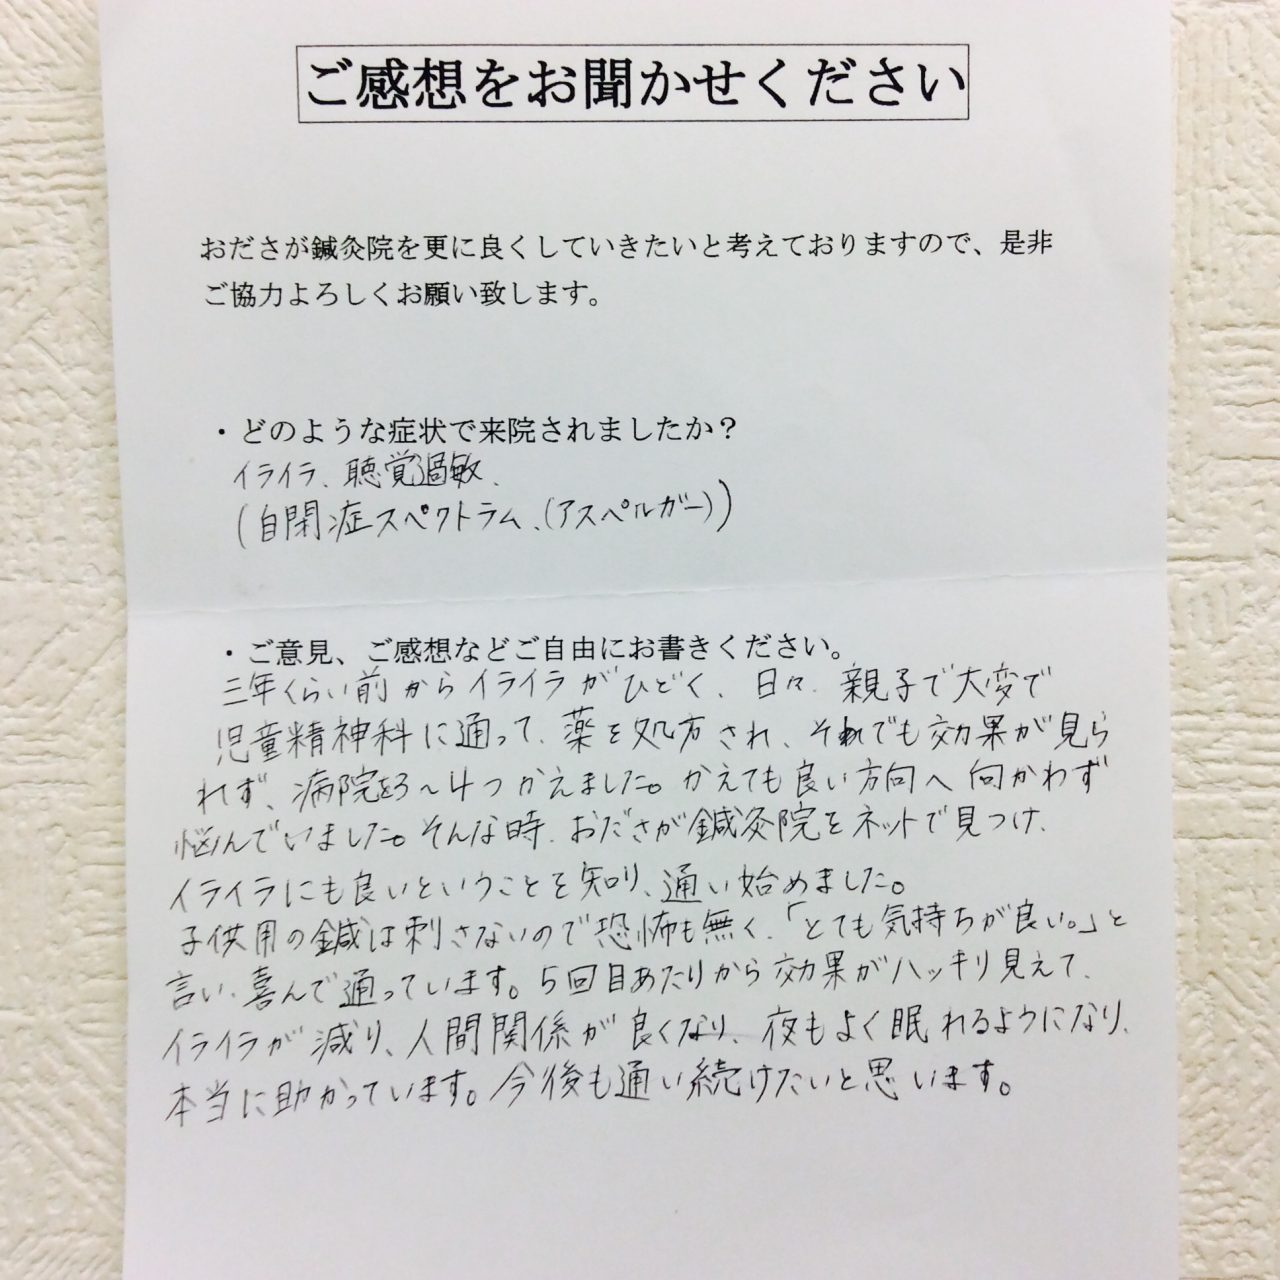 ご感想をお聞かせください
おださが鍼灸院を更に良くしていきたいと考えておりますので、是非
ご協力よろしくお願い致します。
・どのような症状で来院されましたか？
イライラ、聴覚過敏、
(自閉症スペクトラム、(アスペルガー))
・ご意見、ご感想などご自由にお書きください。
三年くらい前からイライラがひどく、日々、親子で大変で
児童精神科に通って、薬を処方され、それでも効果が見ら
れず、病院を3〜4つかえました。かえても良い方向へ向かわず
悩んでいました。そんな時、おださが鍼灸院をネットで見つけ、
イライラにも良いということを知り、通い始めました。
子供用の鍼は刺さないので恐怖も無く、「とても気持ちが良い。」と
言い、喜んで通っています。5回目あたりから効果がハッキリ見えて、
イライラが減り、人間関係が良くなり、夜もよく眠れるようになり、
本当に助かっています。今後も通い続けたいと思います。